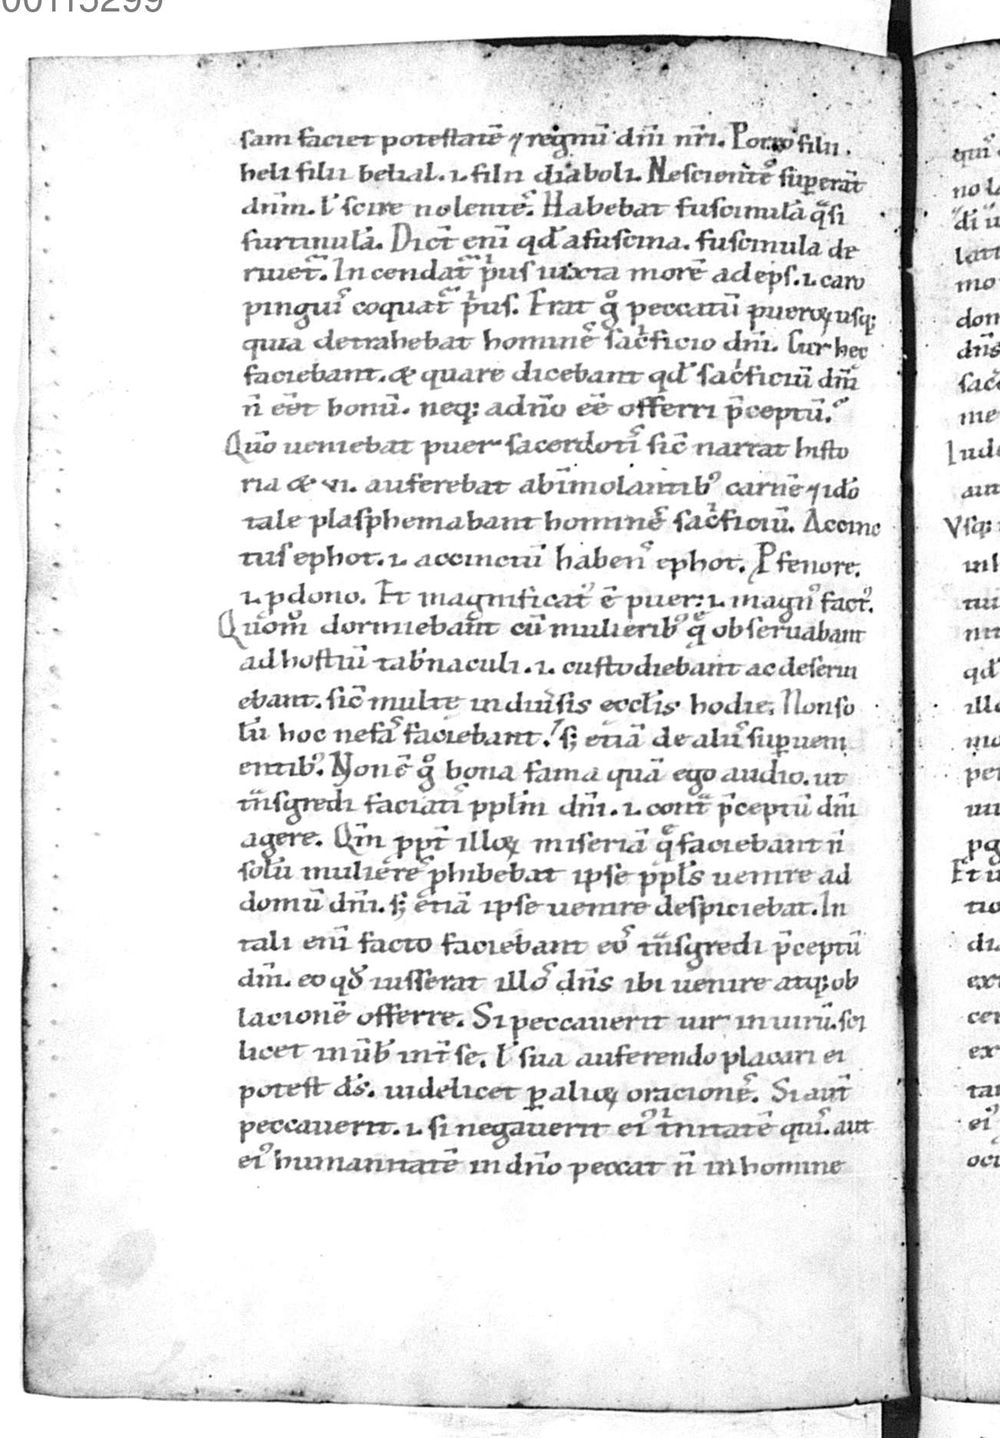 00115299
sam faciet potestatē ⁊ regnū dn̄i nr̄i. Porro filii.
heli filii belial. ı. filii diaboli. Nescientes superant
dn̄m. ł scire nolentes. Habebat fuscinulā q̄si
furcinulā. Dicit̄ eni qđ a fuscina. fuscinula de
riuet̄. Incendat̄ p̄us iuxta morē adeps. ı. caro
pinguis coquat̄ p̄us. Erat g̊ peccatū pueroꝝ usq;
quia detrahebat homines sac̄ficio dn̄i. Cur hec
faciebant. & quare dicebant qđ sac̄ficiū dn̄i
n̄ eēt bonū. neq; a dn̄o eē offerri p̄ceptū.
Quō ueniebat puer sacerdotis sic̄ narrat histo
ria & ui. auferebat ab īmolantib; carnē ⁊ ido
tale plasphemabant homines sac̄ficiū. Accinc
tus ephot. ı. accinctū habens ephot. P fenore.
ı. p dono. Et magnificat' ē puer; ı. magn' fact'.
Quom̄ dormiebant cū mulierib' q̄ obseruabant
ad hostiū tab̄naculi. ı. custodiebant ac deserui
ebant. sic̄ multe in diuisis eccłis hodie. Non so
lū hoc nefas faciebant. s; etiā de aliis superueni
entib'. Non ē g̊ bona fama quā ego audio. ut
tn̄sgredi faciatis pplm̄ dn̄i. ı. cont̄ p̄ceptū dn̄i
agere. Qm̄ ppt̄ illoꝝ miseriā q̄ faciebant n̄
solū mulieres phibebat ipse pplś uenire ad
domū dn̄i. s; etiā ipse uenire despiciebat. In
tali eni facto faciebant eos tn̄sgredi p̄ceptū
dn̄i. eo qđ iusserat illos dn̄s ibi uenire atq; ob
lacionē offerre. Si peccauerit uir in uirū. sci
licet in ūb int̄ se. ł sua auferendo placari ei
potest dś. uidelicet p alioꝝ oraciones. Si aut̄
peccauerit. ı. si negauerit ei' t̄nitatē quis. aut
ei' humanitatē in dn̄o peccat n̄ in homine